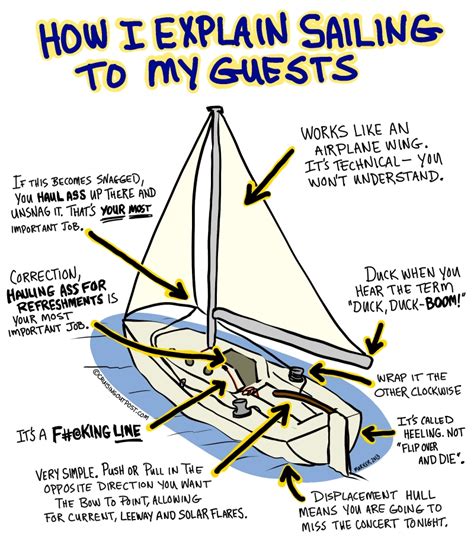 HOW I EXPLAIN SAILING
TO MY GUESTS
WORKS LIKE AN
AIRPLANE WING.
IT'S TECHNICAL — YOU
WON'T UNDERSTAND.
IF THIS BECOMES SNAGGED,
YOU HAUL ASS UP THERE AND
UNSNAG IT. THAT'S YOUR MOST
IMPORTANT JOB.
CORRECTION,
HAULING ASS FOR
REFRESHMENTS IS
YOUR MOST
IMPORTANT JOB.
DUCK WHEN YOU
HEAR THE TERM
"DUCK, DUCK-BOOM!"
WRAP IT THE
OTHER CLOCKWISE
©CRUISINGOUTPOST.COM
IT'S A F#@KING LINE
IT'S CALLED
HEELING. NOT
"FLIP OVER
AND DIE".
VERY SIMPLE. PUSH OR PULL IN THE
OPPOSITE DIRECTION YOU WANT
THE BOW TO POINT, ALLOWING
FOR CURRENT, LEEWAY AND SOLAR FLARES.
DISPLACEMENT HULL
MEANS YOU ARE GOING TO
MISS THE CONCERT TONIGHT.